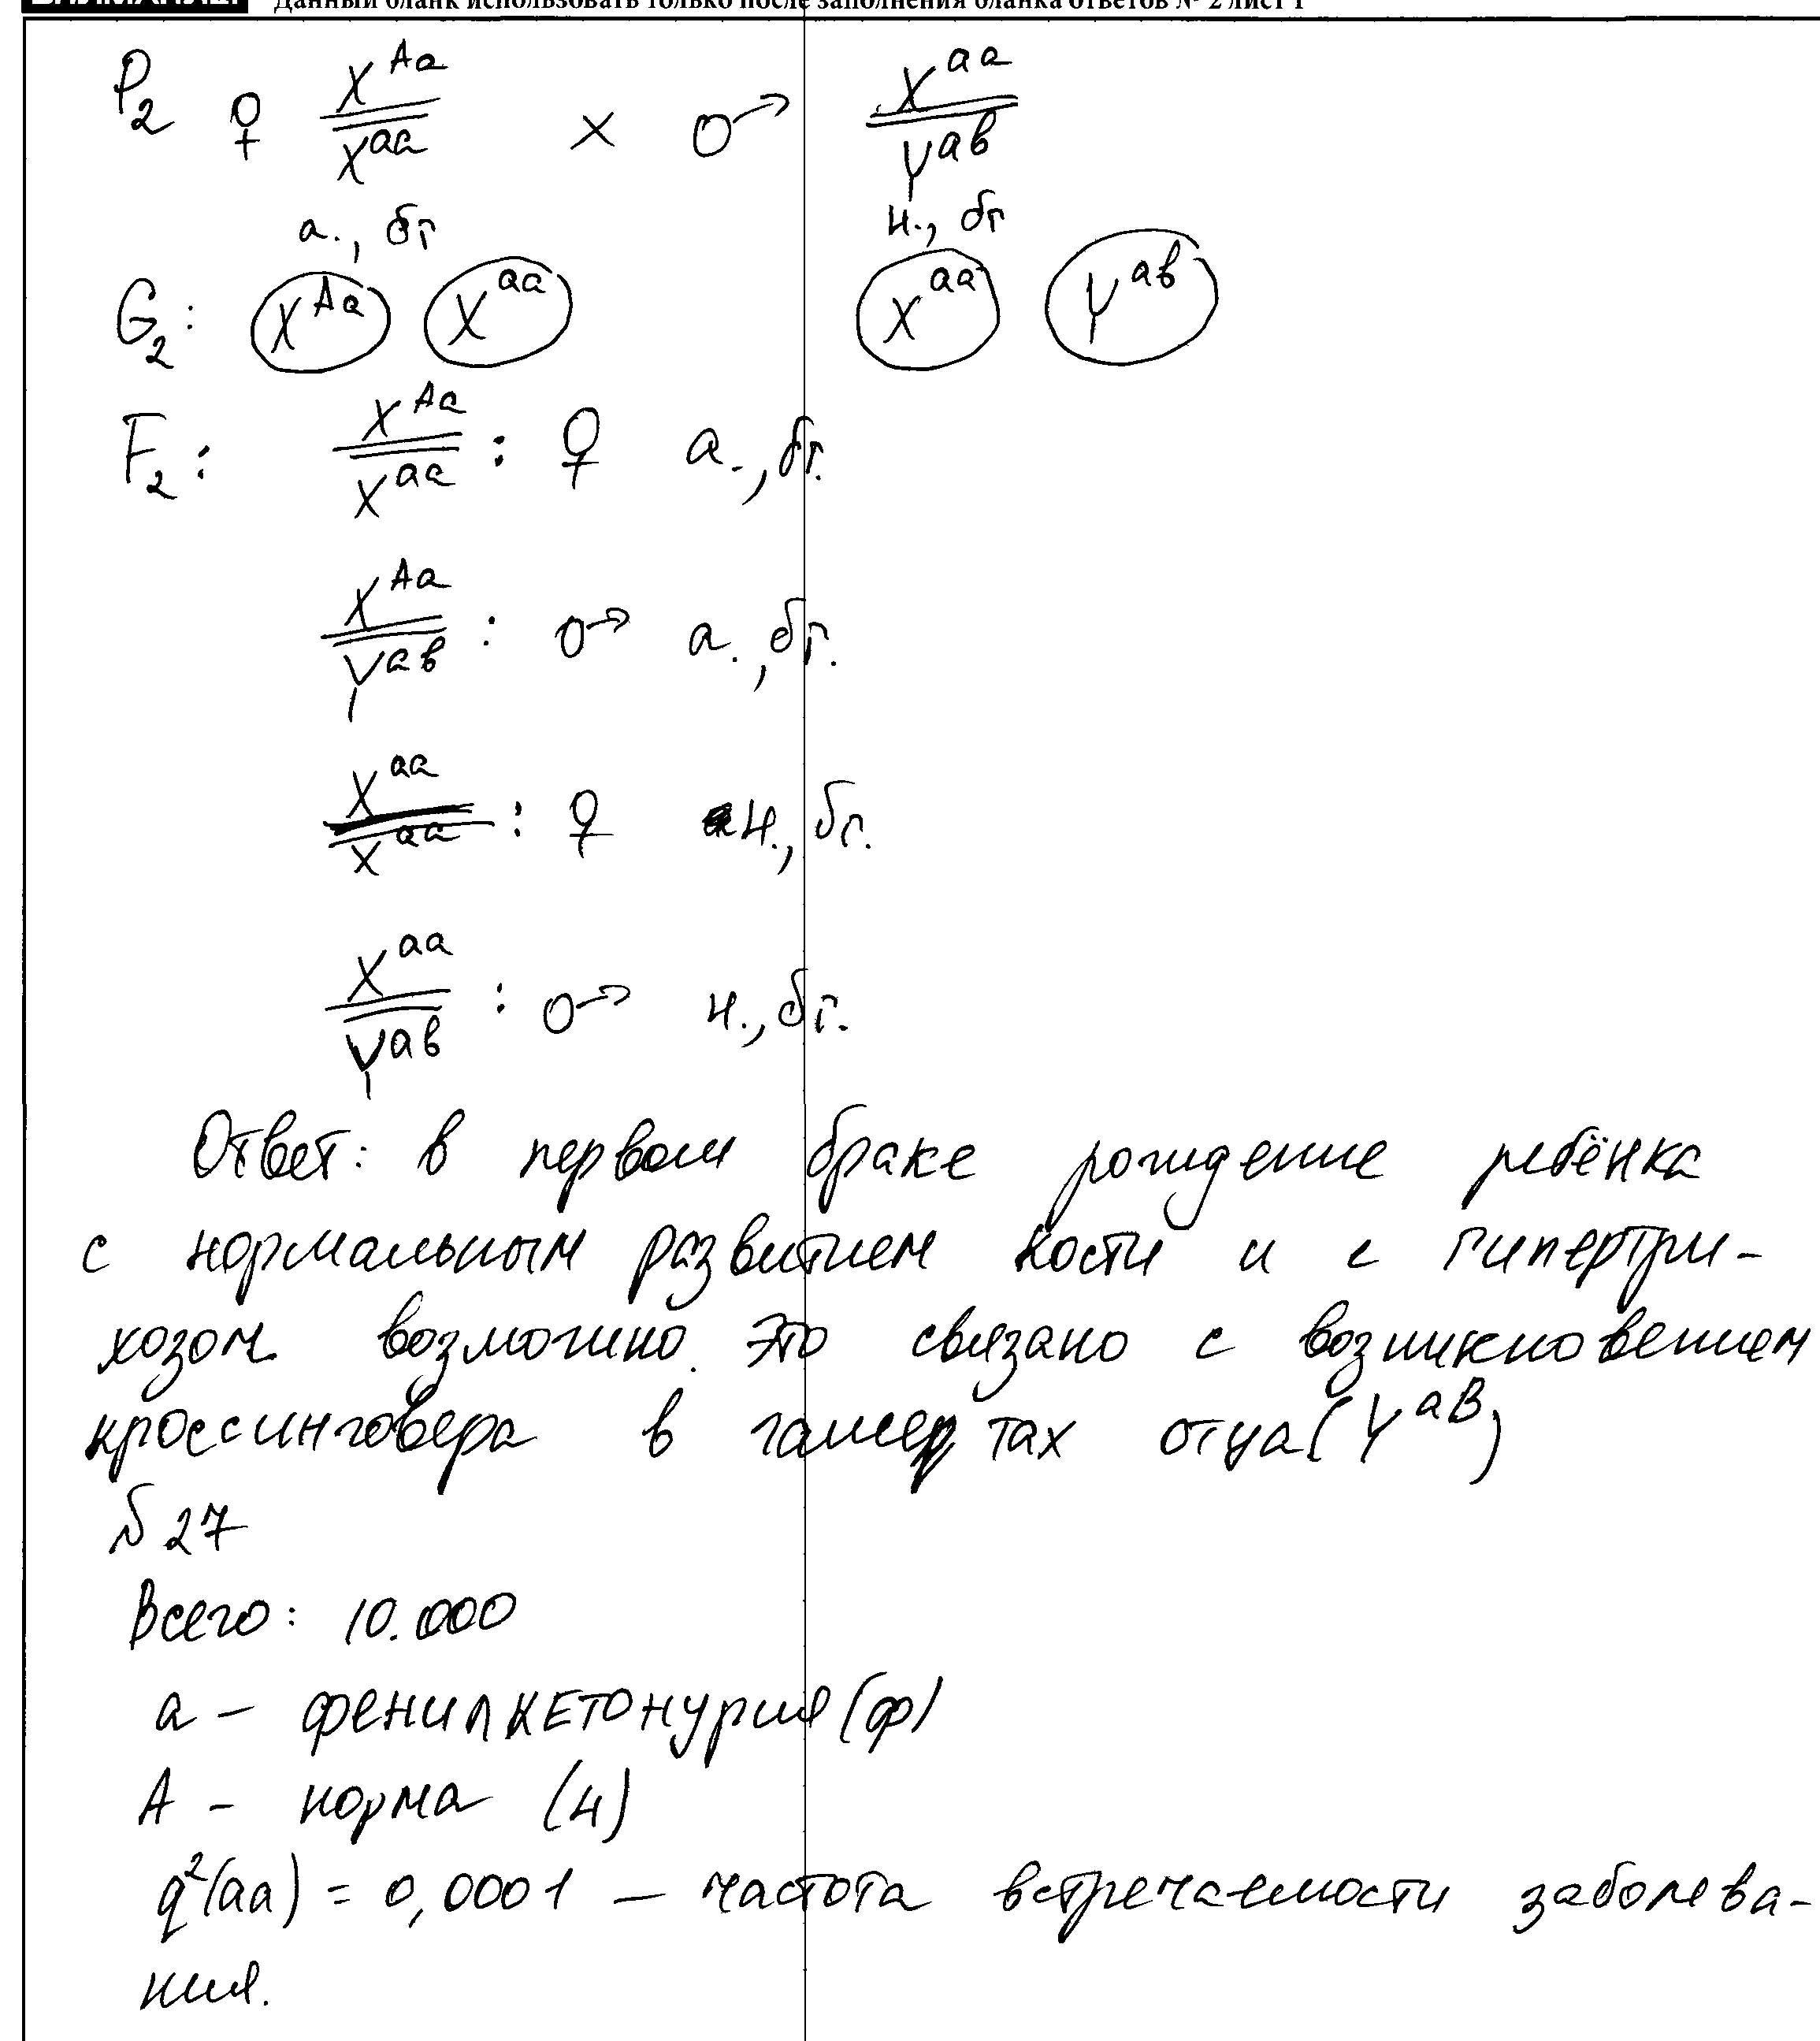 Данный бланк использовать только после заполнения бланка ответов № 2 лист 1
P₂ ♀ X^Aa/X^aa × ♂ X^aa/Y^ab
а., бг н., бг
G₂: X^Aa X^aa X^aa Y^ab
F₂: X^Aa/X^aa : ♀ а., бг.
X^Aa/Y^ab : ♂ а., бг.
X^aa/X^aa : ♀ н., бг.
X^aa/Y^ab : ♂ н., бг.
Ответ: в первом браке рождение ребёнка
с нормальным развитием кости и с гипертри-
хозом возможно. Это связано с возникновением
кроссинговера в гаметах отца (Y^aB)
№ 27
Всего: 10.000
а – фенилкетонурия (ф)
А – норма (н)
q²(aa) = 0,0001 – частота встречаемости заболева-
ния.